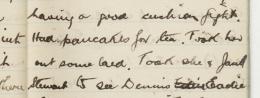 having a good cushion fight.
Had pancakes for tea. Took her
out some lard. Took she & Jault
Stewart to see Dennis Eadie